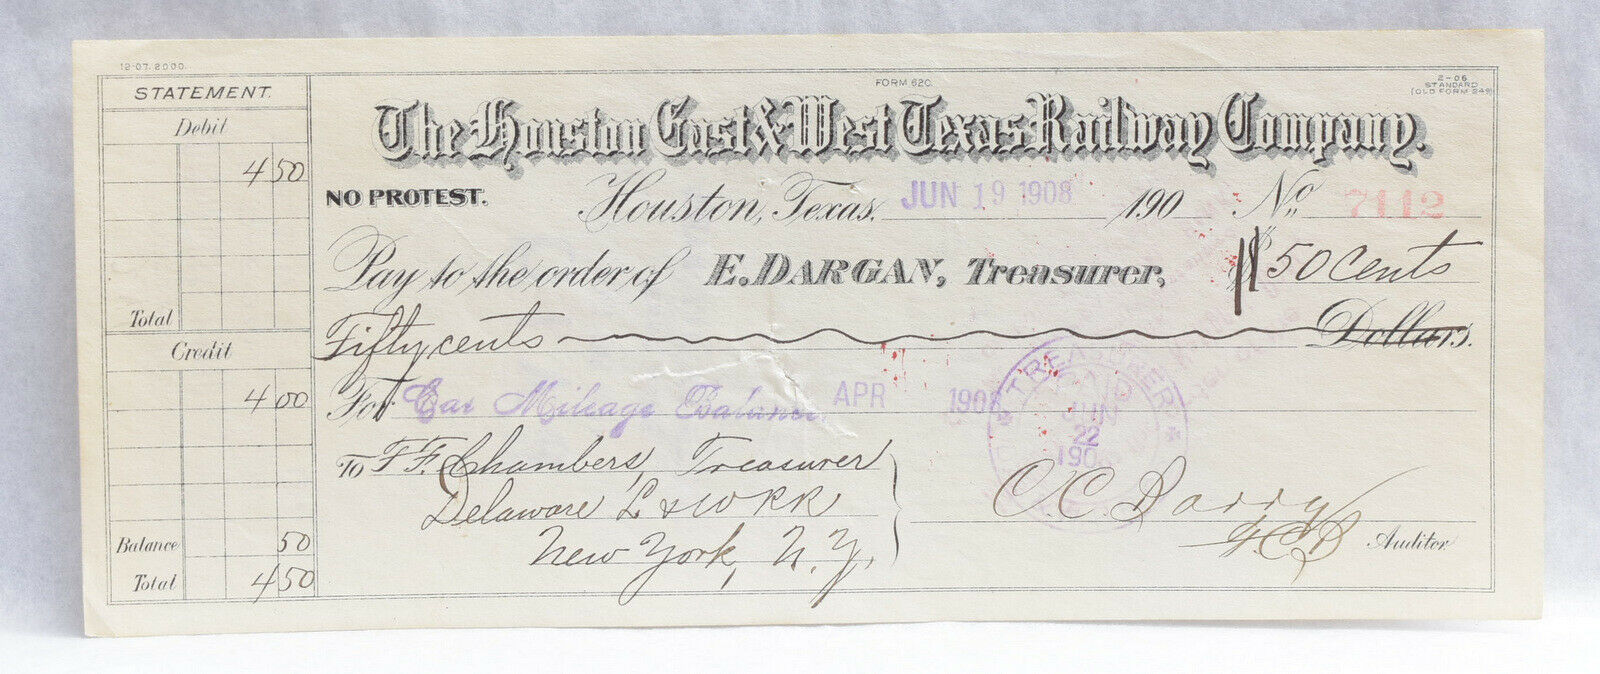 12-07. 2000.
STATEMENT.
Debit
4 50
Total
Credit
4 00
Balance 50
Total 4 50
FORM 620.
2-06
STANDARD
(OLD FORM 249)
The Houston East & West Texas Railway Company.
NO PROTEST. Houston, Texas. JUN 19 1908 190 No. 7112
Pay to the order of E. DARGAN, Treasurer, $ 50 cents
Fifty cents Dollars.
For Car Mileage Balance APR 1908
To F F. Chambers, Treasurer
Delaware L & W R R
New York, N. Y.
TREASURER
JUN
22
190
Auditor